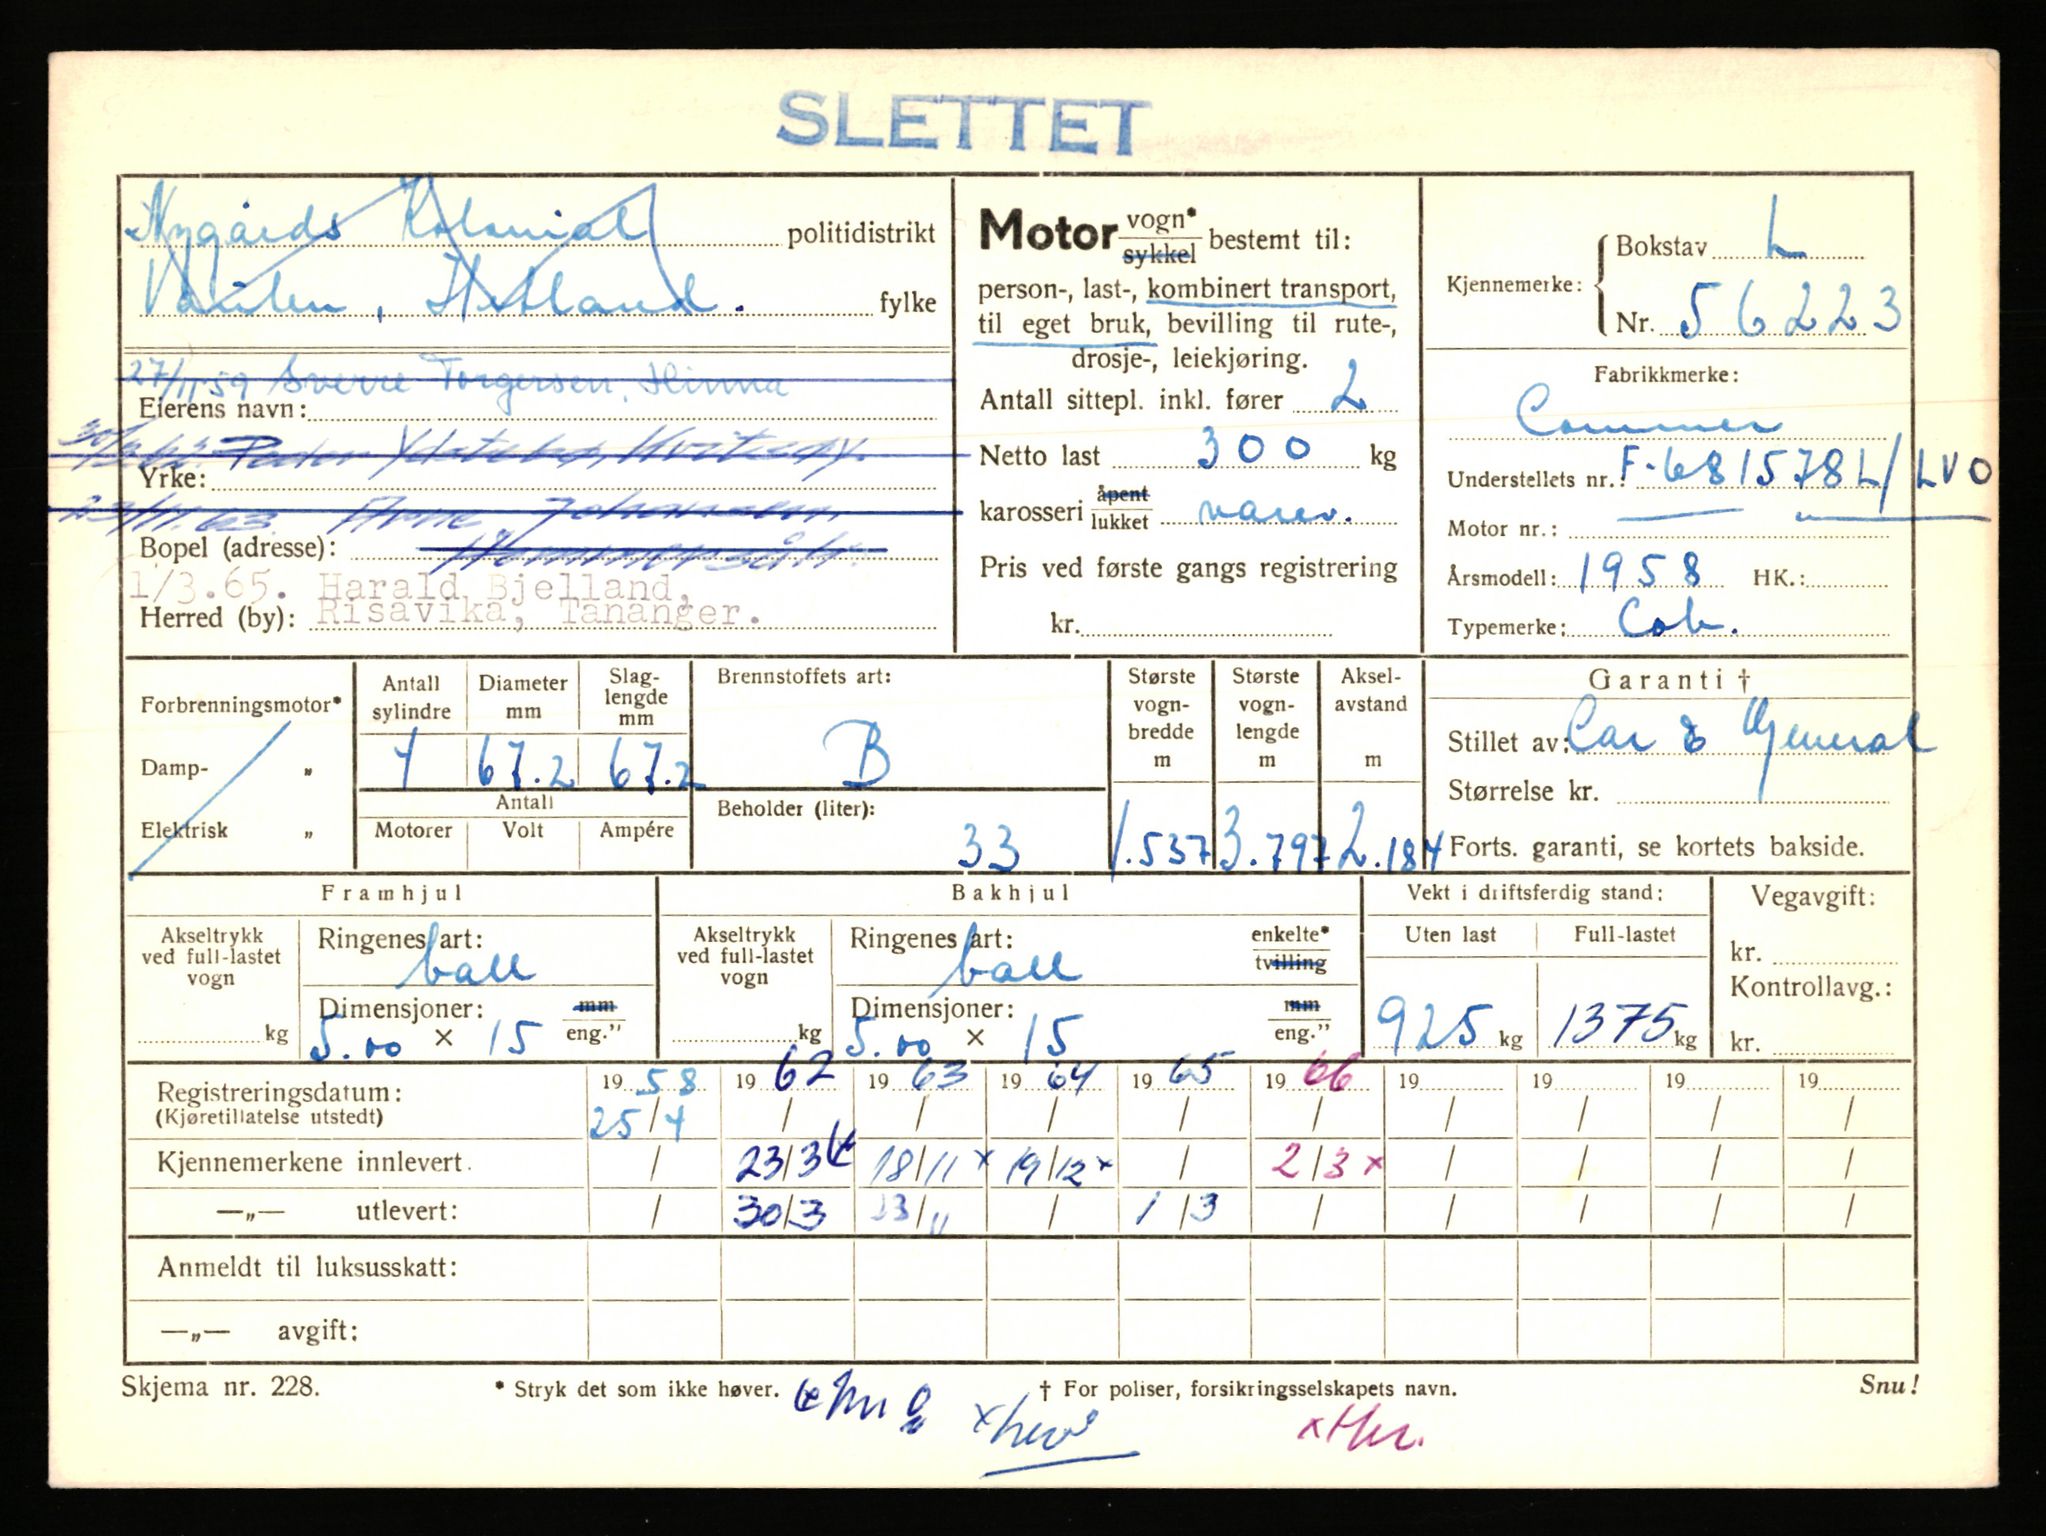 SLETTET
Nygårds Kolonial politidistrikt
Vaulen, Hetland. fylke
27/11 59 Sverre Torgersen, Hinna
Eierens navn:
30/3 62. Peder Ydstebø, Kvitsøy.
Yrke:
23/11. 63. Arne Johansen,
Bopel (adresse): Hommersåk.
1/3.65. Harald Bjelland,
Herred (by): Risavika, Tananger.
Motor vogn* sykkel bestemt til:
person-, last-, kombinert transport,
til eget bruk, bevilling til rute-,
drosje-, leiekjøring.
Antall sittepl. inkl. fører 2
Netto last 300 kg
karosseri åpent lukket varev.
Pris ved første gangs registrering
kr.
Kjennemerke: Bokstav L
Nr. 56223
Fabrikkmerke:
Commer
Understellets nr.: F-681578L/LVO
Motor nr.:
Årsmodell: 1958 HK.:
Typemerke: Cob.
Forbrenningsmotor*
Damp- „
Elektrisk „
Antall sylindre Diameter mm Slag-lengde mm
4 67.2 67.2
Antall
Motorer Volt Ampére
Brennstoffets art:
B
Beholder (liter):
33
Største vogn-bredde m Største vogn-lengde m Aksel-avstand m
1.537 3.797 2.184
Garanti †
Stillet av: Car & General
Størrelse kr.
Forts. garanti, se kortets bakside.
Framhjul
Akseltrykk ved full-lastet vogn
kg
Ringenes art:
ball
Dimensjoner: mm
5.00 × 15 eng."
Bakhjul
Akseltrykk ved full-lastet vogn
kg
Ringenes art: enkelte*
ball tvilling
Dimensjoner: mm
5.00 × 15 eng."
Vekt i driftsferdig stand:
Uten last Full-lastet
925 kg 1375 kg
Vegavgift:
kr.
Kontrollavg.:
kr.
Registreringsdatum: 1958 1962 1963 1964 1965 1966 19 19 19 19
(Kjøretillatelse utstedt) 25/4 / / / / / / / / /
Kjennemerkene innlevert. / 23/3 18/11 x 19/12 x / 2/3 x / / / /
—„— utlevert: / 30/3 23/11 / 1/3 / / / / /
Anmeldt til luksusskatt:
—„— avgift:
Skjema nr. 228. * Stryk det som ikke høver. † For poliser, forsikringsselskapets navn. Snu!